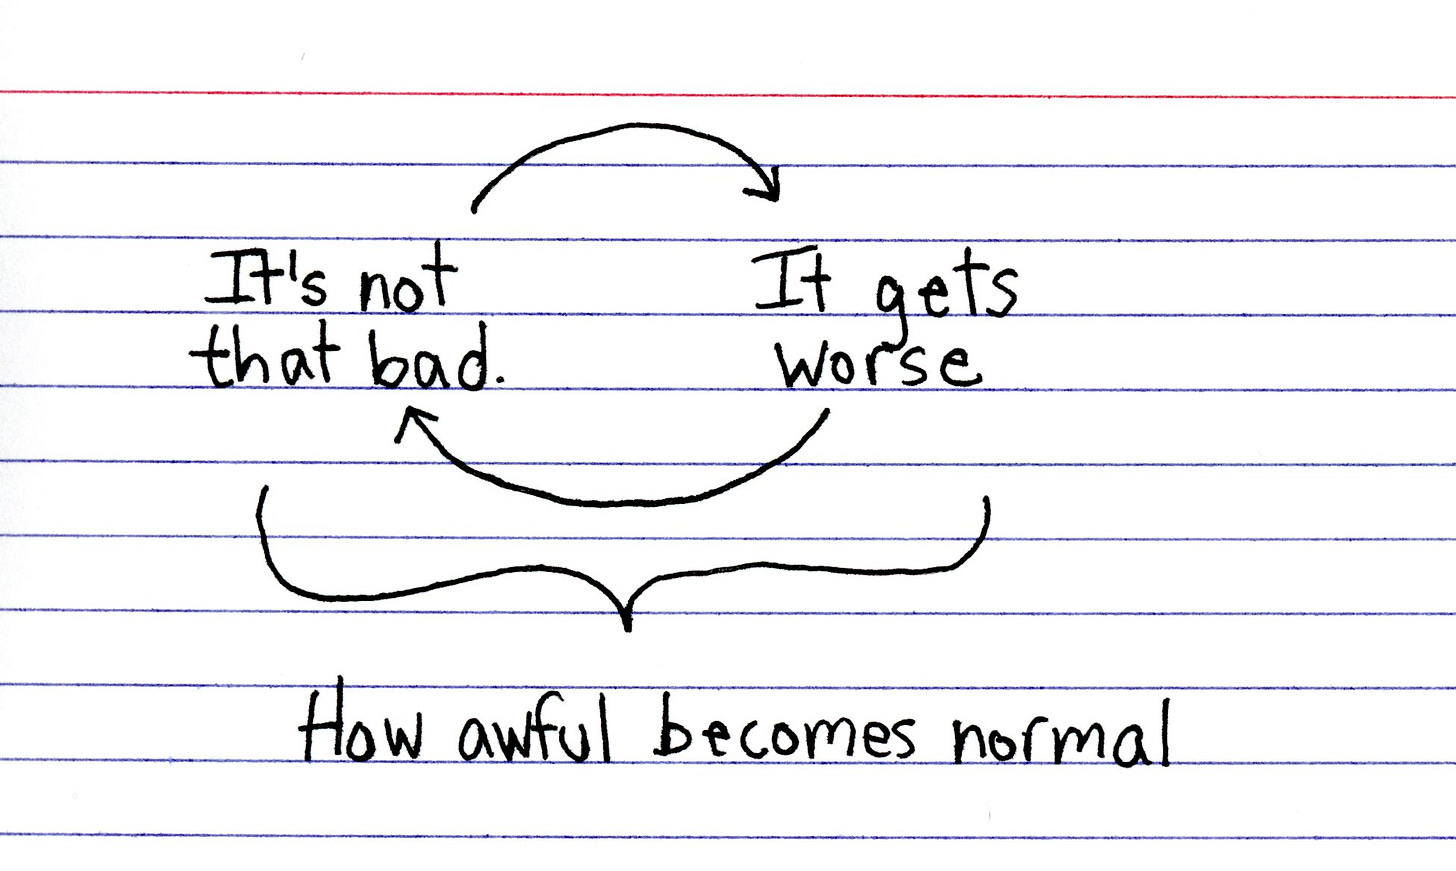 It's not
that bad.
It gets
worse
How awful becomes normal